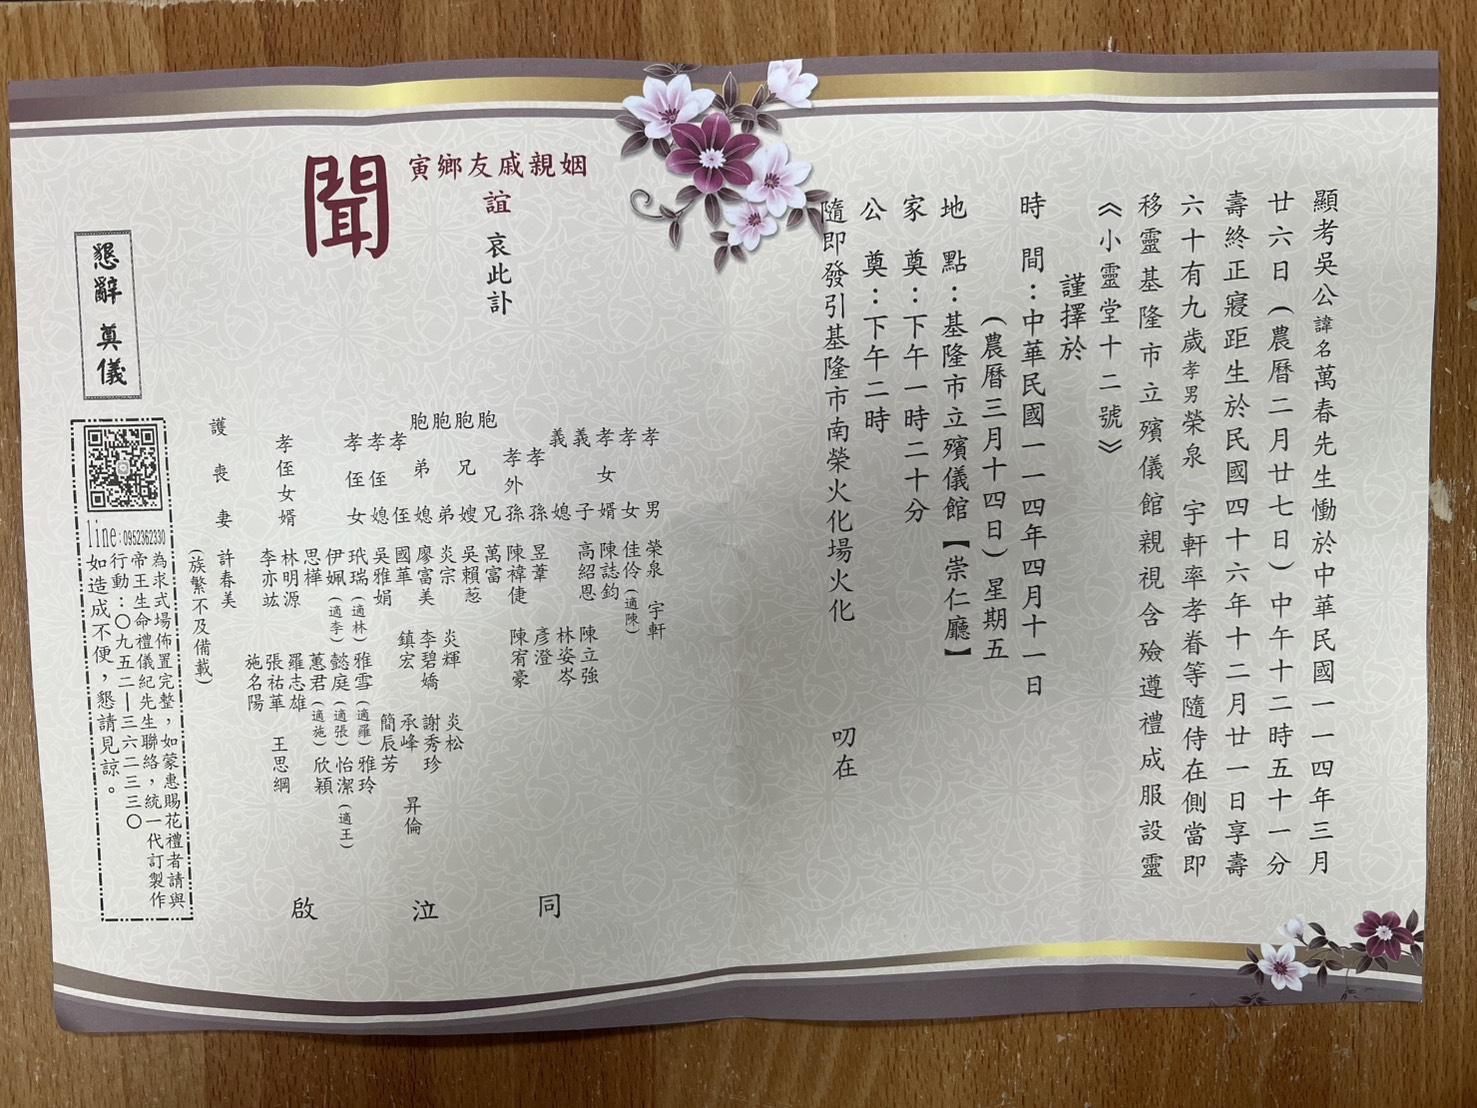 顯考吳公諱名萬春先生慟於中華民國一一四年三月
廿六日(農曆二月廿七日)中午十二時五十一分
壽終正寢距生於民國四十六年十二月廿一日享壽
六十有九歲孝男榮泉 宇軒率孝眷等隨侍在側當即
移靈基隆市立殯儀館親視含殮遵禮成服設靈
《小靈堂十二號》
謹擇於
時 間:中華民國一一四年四月十一日
(農曆三月十四日)星期五
地 點:基隆市立殯儀館【崇仁廳】
家 奠:下午一時二十分
公 奠:下午二時
隨即發引基隆市南榮火化場火化
叨在
姻親戚友鄉寅
誼 哀此訃
聞
孝男 榮泉 宇軒
孝女 佳伶(適陳)
孝女婿 陳誌鈞
義子 高紹恩 陳立強
義媳 林姿岑
孝孫 昱葦 彥澄
孝外孫 陳褘倢 陳宥豪
胞兄 萬富
胞兄嫂 吳賴葱
胞弟 炎宗 炎輝 炎松
胞弟媳 廖富美 李碧嬌 謝秀珍
孝侄 國華 鎮宏 承峰 昇倫
孝侄媳 吳雅娟 簡辰芳
孝侄女 玳瑞(適林) 雅雪(適羅) 雅玲
伊姵(適李) 懿庭(適張) 怡潔(適王)
思樺 蕙君(適施) 欣穎
孝侄女婿 林明源 羅志雄
李亦竑 張祐華 王思綱
施名陽
護喪妻 許春美
(族繁不及備載)
同 泣 啟
懇辭 奠儀
line:0952362330
為求式場佈置完整,如蒙惠賜花禮者請與
帝王生命禮儀紀先生聯絡,統一代訂製作
行動:〇九五二—三六二三三〇
如造成不便,懇請見諒。